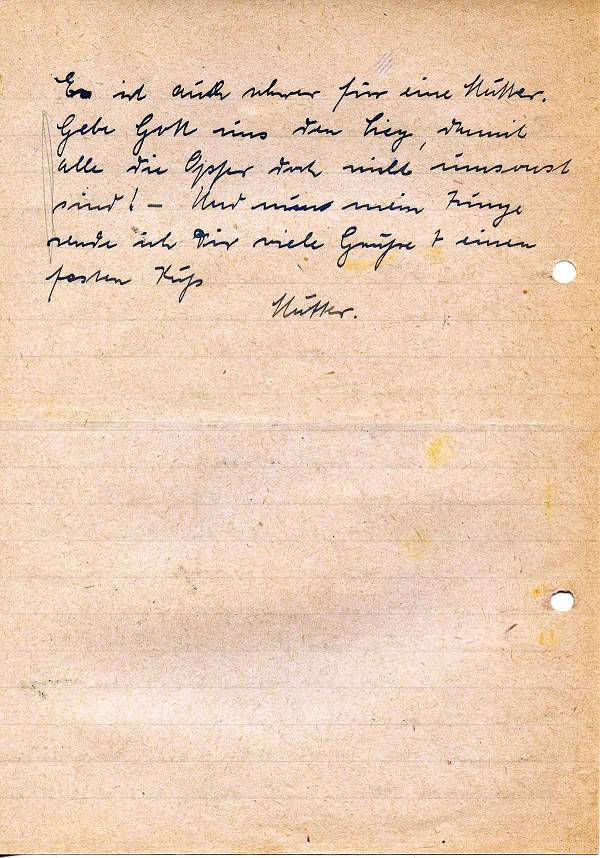 Es ist auch schwer für eine Mutter.
Gebe Gott uns den Sieg, damit
alle die Opfer doch nicht umsonst
sind! – Und nun mein Junge
sende ich Dir viele Grüße + einen
festen Kuß
Mutter.